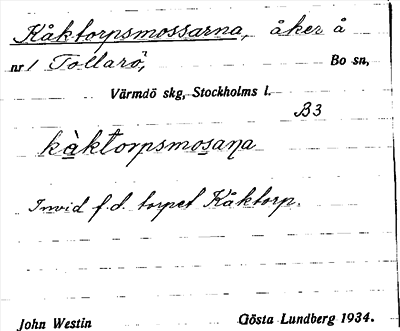 Kåktorpsmossarna, åker å
nr 1 Tollarö, Bo sn,
Värmdö skg, Stockholms l.
B3
kàktorpsmosaꞃa
Invid f.d. torpet Kåktorp.
John Westin Gösta Lundberg 1934.